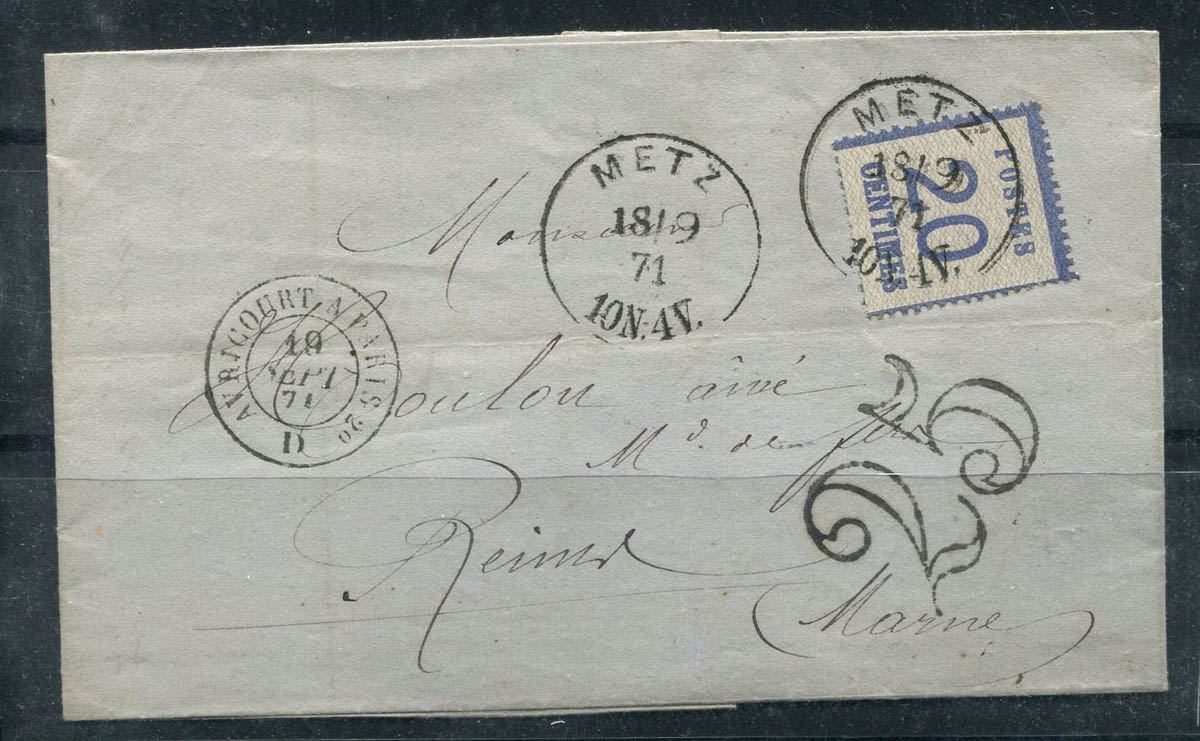 METZ
18/9
71
10N.4V.
METZ
18/9
71
10N.4V.
POSTES
20
CENTIMES
AVRICOURT A PARIS 2º
19
SEPT
71
D
25
Monsieur
Soulon aîné
Md. de fers
Reims
Marne